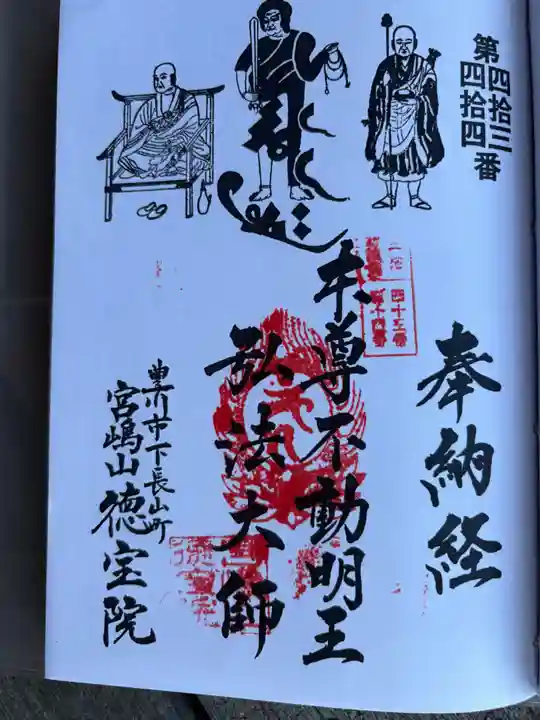 第四拾三
四拾四番
奉納経
本尊不動明王
弘法大師
豊川市下長山町
宮嶋山徳宝院
四十三番